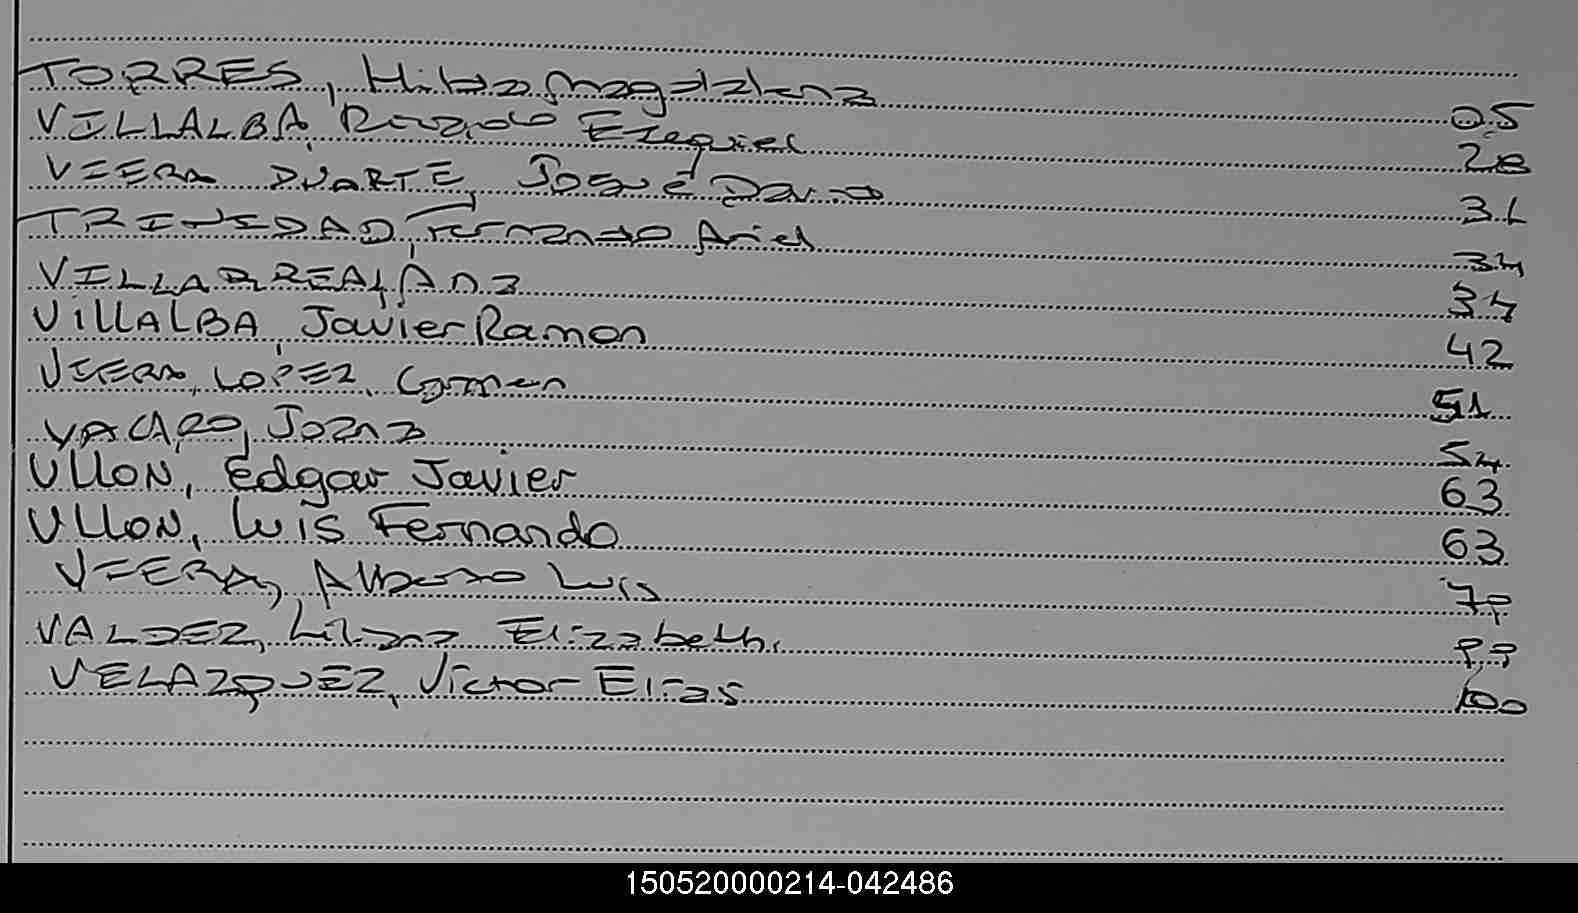 TORRES, Hilda Magdalena 05
VILLALBA, Ricardo Ezequiel 28
VEERA DUARTE, Josué David 31
TRINIDAD, Fernando Ariel 34
VILLARREAL, Ana 34
VillALBA, Javier Ramon 42
VEERA LOPEZ, Carmen 51
VACARO, Joana 54
Ullon, Edgar Javier 63
Ullon, Luis Fernando 63
VEERA, Alberto Luis 79
VALDEZ, Liliana Elizabeth. 99
VELAZQUEZ, Victor Elias 100
150520000214-042486